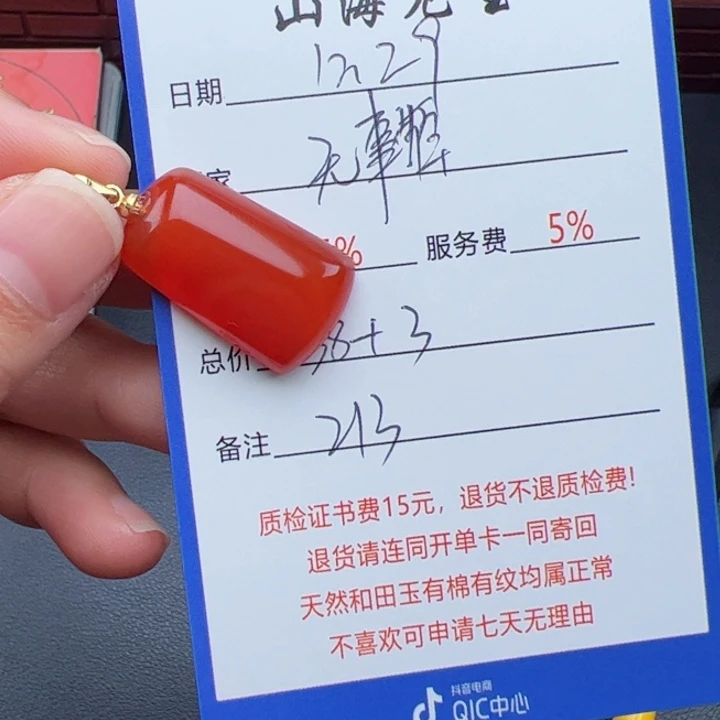 日期 12.29
家 无事牌
5% 服务费 5%
总价 38+3
备注 213
质检证书费15元，退货不退质检费！
退货请连同开单卡一同寄回
天然和田玉有棉有纹均属正常
不喜欢可申请七天无理由
抖音电商
QIC中心